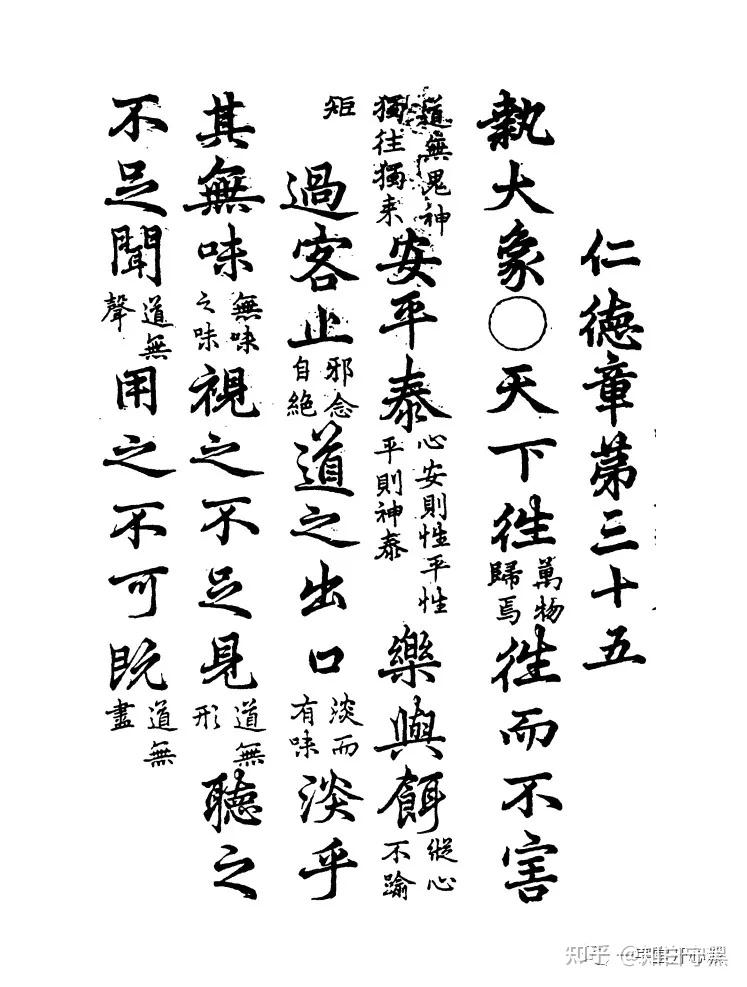 仁徳章第三十五
執大象○天下往萬物歸焉往而不害
道無鬼神獨往獨来安平泰心安則性平性平則神泰樂與餌縱心不踰
矩過客止邪念自絶道之出口淡而有味淡乎
其無味無味之味視之不足見道無形聽之
不足聞道無聲用之不可既道無盡
知乎